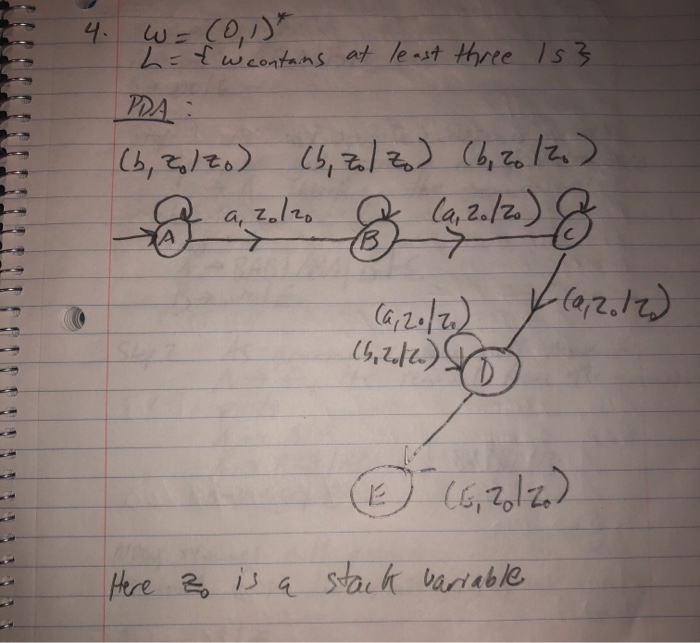 4. w = (0,1)*
L = { w contains at least three 1s }
PDA :
(b, z₀/z₀) (b, z₀/z₀) (b, z₀/z₀)
a, z₀/z₀ (a, z₀/z₀)
A B C
(a, z₀/z₀) (a, z₀/z₀)
(b, z₀/z₀)
D
E (ε, z₀/z₀)
Here z₀ is a stack variable